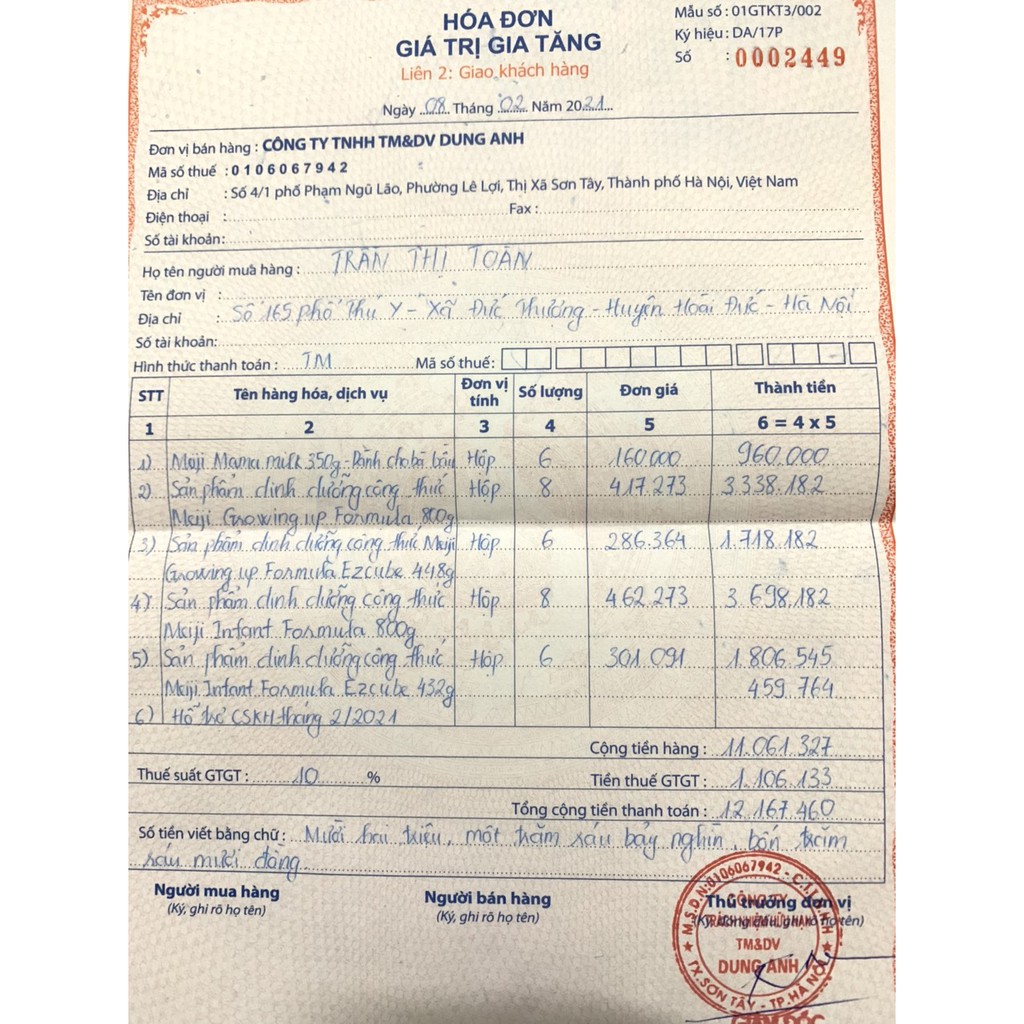 HÓA ĐƠN
GIÁ TRỊ GIA TĂNG
Liên 2: Giao khách hàng
Mẫu số : 01GTKT3/002
Ký hiệu : DA/17P
Số : 0002449
Ngày 08 Tháng 02 Năm 2021
Đơn vị bán hàng : CÔNG TY TNHH TM&DV DUNG ANH
Mã số thuế : 0106067942
Địa chỉ : Số 4/1 phố Phạm Ngũ Lão, Phường Lê Lợi, Thị Xã Sơn Tây, Thành phố Hà Nội, Việt Nam
Điện thoại : Fax :
Số tài khoản:
Họ tên người mua hàng : TRẦN THỊ TOÀN
Tên đơn vị :
Địa chỉ : Số 165 phố Thú Y - Xã Đức Thượng - Huyện Hoài Đức - Hà Nội
Số tài khoản:
Hình thức thanh toán : TM Mã số thuế :
STT Tên hàng hóa, dịch vụ Đơn vị tính Số lượng Đơn giá Thành tiền
1 2 3 4 5 6 = 4 x 5
1) Meiji Mama milk 350g - Dành cho bà bầu Hộp 6 160.000 960.000
2) Sản phẩm dinh dưỡng công thức Hộp 8 417.273 3.338.182
Meiji Growing up Formula 800g
3) Sản phẩm dinh dưỡng công thức Meiji Hộp 6 286.364 1.718.182
Growing up Formula Ezcube 448g
4) Sản phẩm dinh dưỡng công thức Hộp 8 462.273 3.698.182
Meiji Infant Formula 800g
5) Sản phẩm dinh dưỡng công thức Hộp 6 301.091 1.806.545
Meiji Infant Formula Ezcube 432g 459.764
6) Hỗ trợ CSKH tháng 2/2021
Cộng tiền hàng : 11.061.327
Thuế suất GTGT : 10 % Tiền thuế GTGT : 1.106.133
Tổng cộng tiền thanh toán : 12.167.460
Số tiền viết bằng chữ : Mười hai triệu, một trăm sáu bảy nghìn, bốn trăm
sáu mươi đồng
Người mua hàng Người bán hàng Thủ trưởng đơn vị
(Ký, ghi rõ họ tên) (Ký, ghi rõ họ tên) (Ký, đóng dấu, ghi rõ họ tên)
M.S.D.N: 0106067942 - C.T.T.N.H.H
CÔNG TY
TRÁCH NHIỆM HỮU HẠN
TM&DV
DUNG ANH
TX.SƠN TÂY - TP.HÀ NỘI
GIÁM ĐỐC